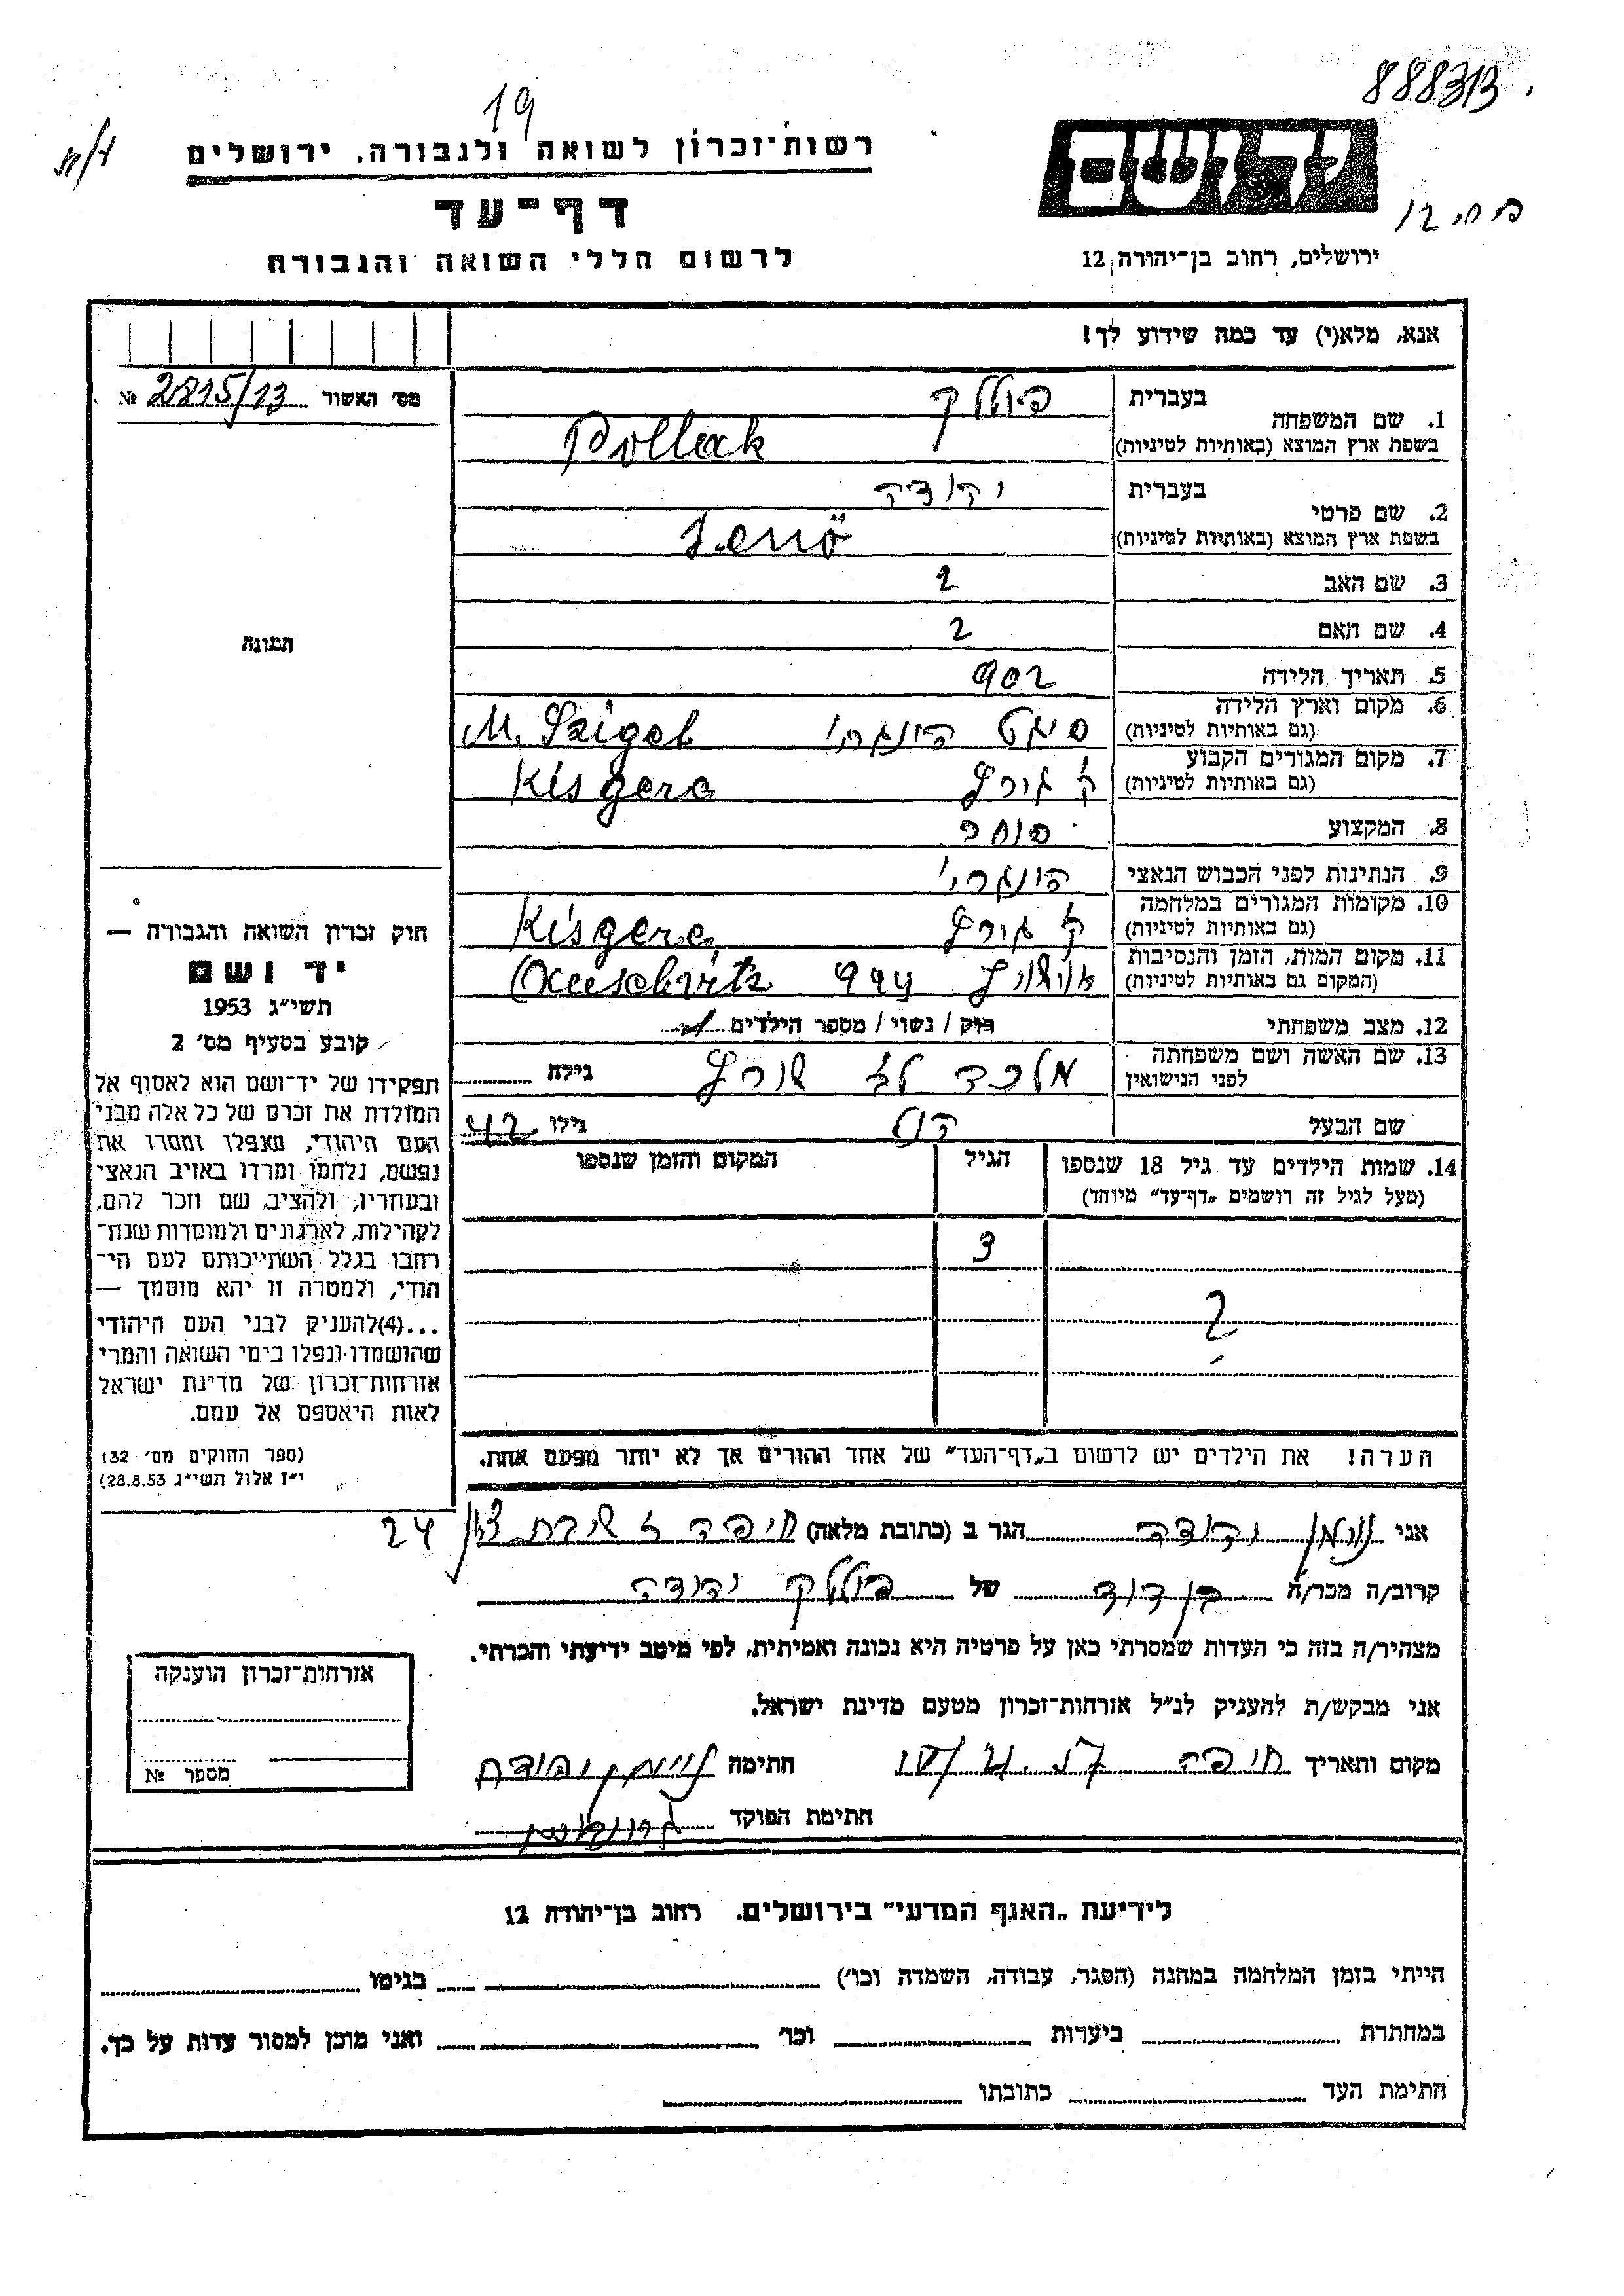 888313
19
רשות־זכרון לשואה ולגבורה, ירושלים
יד ושם
דף־עד
לרשום חללי השואה והגבורה
ירושלים, רחוב בן־יהודה 12
אנא, מלא(י) עד כמה שידוע לך!
מס׳ האשור 2815/13 №
1. שם המשפחה בעברית פולק
בשפת ארץ המוצא (באותיות לטיניות) Pollak
2. שם פרטי בעברית יהודה
בשפת ארץ המוצא (באותיות לטיניות) Jenő
3. שם האב ?
4. שם האם ?
5. תאריך הלידה 902
6. מקום וארץ הלידה (גם באותיות לטיניות) סיגט הונגרי׳ M. Sziget
7. מקום המגורים הקבוע (גם באותיות לטיניות) Kisgere
8. המקצוע סוחר
9. הנתינות לפני הכבוש הנאצי הונגרי׳
10. מקומות המגורים במלחמה (גם באותיות לטיניות) Kisgere
11. מקום המות, הזמן והנסיבות (המקום גם באותיות לטיניות) אושויץ 944 Auschvitz
12. מצב משפחתי רוק / נשוי / מספר הילדים 1
13. שם האשה ושם משפחתה לפני הנישואין גילה
שם הבעל גילו 42
תמונה
14. שמות הילדים עד גיל 18 שנספו (מעל לגיל זה רושמים „דף־עד״ מיוחד) הגיל המקום והזמן שנספו
3
?
הערה! את הילדים יש לרשום ב„דף־העד״ של אחד ההורים אך לא יותר מפעם אחת.
חוק זכרון השואה והגבורה —
יד ושם
תשי״ג 1953
קובע בסעיף מס׳ 2
תפקידו של יד־ושם הוא לאסוף אל
המולדת את זכרם של כל אלה מבני
העם היהודי, שנפלו ומסרו את
נפשם, נלחמו ומרדו באויב הנאצי
ובעוזריו, ולהציב שם וזכר להם,
לקהילות, לארגונים ולמוסדות שנח־
רבו בגלל השתייכותם לעם הי־
הודי, ולמטרה זו יהא מוסמך —
...(4)להעניק לבני העם היהודי
שהושמדו ונפלו בימי השואה והמרי
אזרחות־זכרון של מדינת ישראל
לאות היאספם אל עמם.
(ספר החוקים מס׳ 132
י״ז אלול תשי״ג 28.8.53)
אני נוימן יהודה הגר ב (כתובת מלאה) חיפה שיבת ציון 24
קרוב/ה מכר/ה בן דוד של פולק יהודה
מצהיר/ה בזה כי העדות שמסרתי כאן על פרטיה היא נכונה ואמיתית, לפי מיטב ידיעתי והכרתי.
אני מבקש/ת להעניק לנ״ל אזרחות־זכרון מטעם מדינת ישראל.
מקום ותאריך חיפה חתימה נוימן יהודה
חתימת הפוקד
אזרחות־זכרון הוענקה
מספר №
לידיעת „האגף המדעי״ בירושלים. רחוב בן־יהודה 12
הייתי בזמן המלחמה במחנה (הסגר, עבודה, השמדה וכו׳) בגיטו
במחתרת ביערות וכו׳ ואני מוכן למסור עדות על כך.
חתימת העד כתובתו